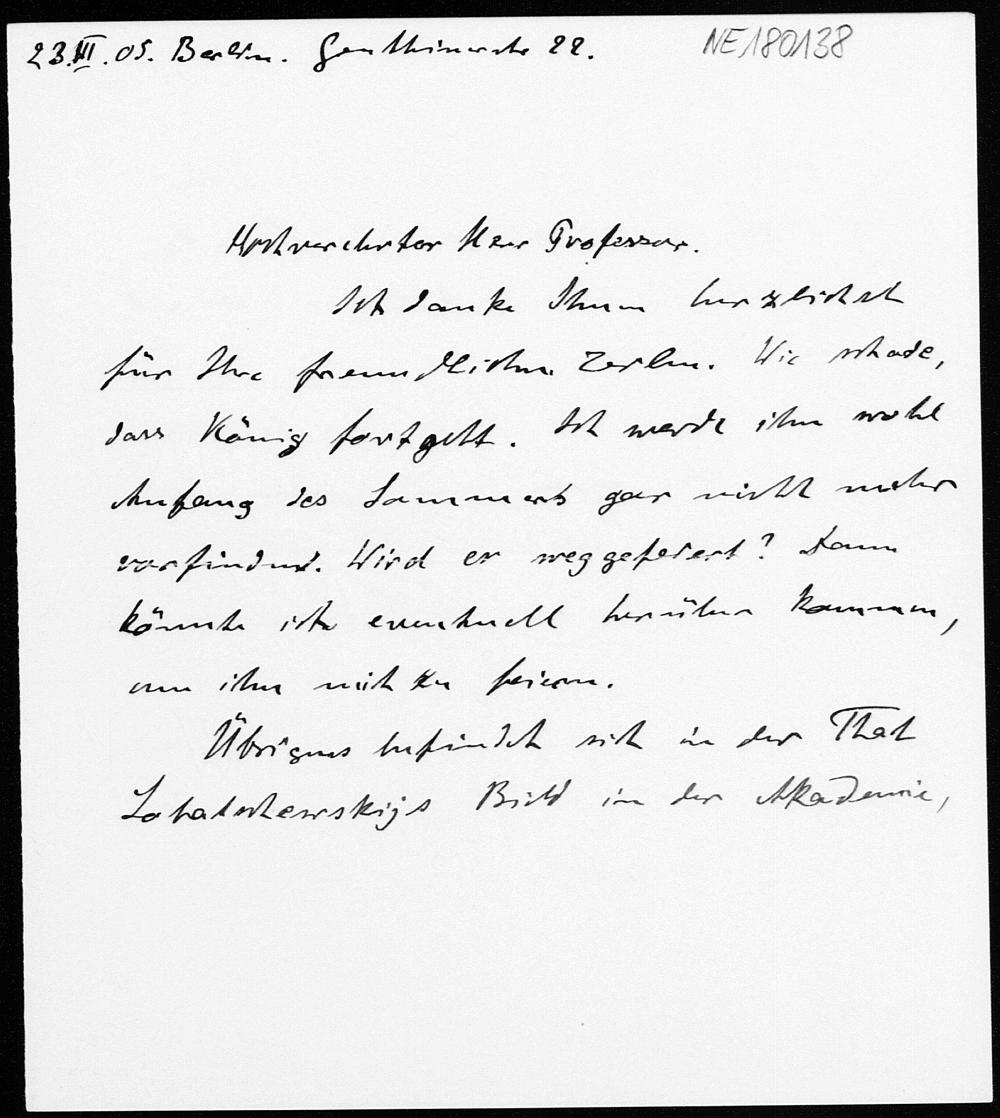 23.III.05. Berlin. Genthinerstr 22.
NE180138
Hochverehrter Herr Professor.
Ich danke Ihnen herzlichst
für Ihre freundlichen Zeilen. Wie schade,
dass König fortgeht. Ich werde ihn wohl
Anfang des Sommers gar nicht mehr
vorfinden. Wird er weggefeiert? Dann
könnte ich eventuell herüber kommen,
um ihn mit zu feiern.
Übrigens befindet sich in der That
Lobatschewskijs Bild in der Akademie,